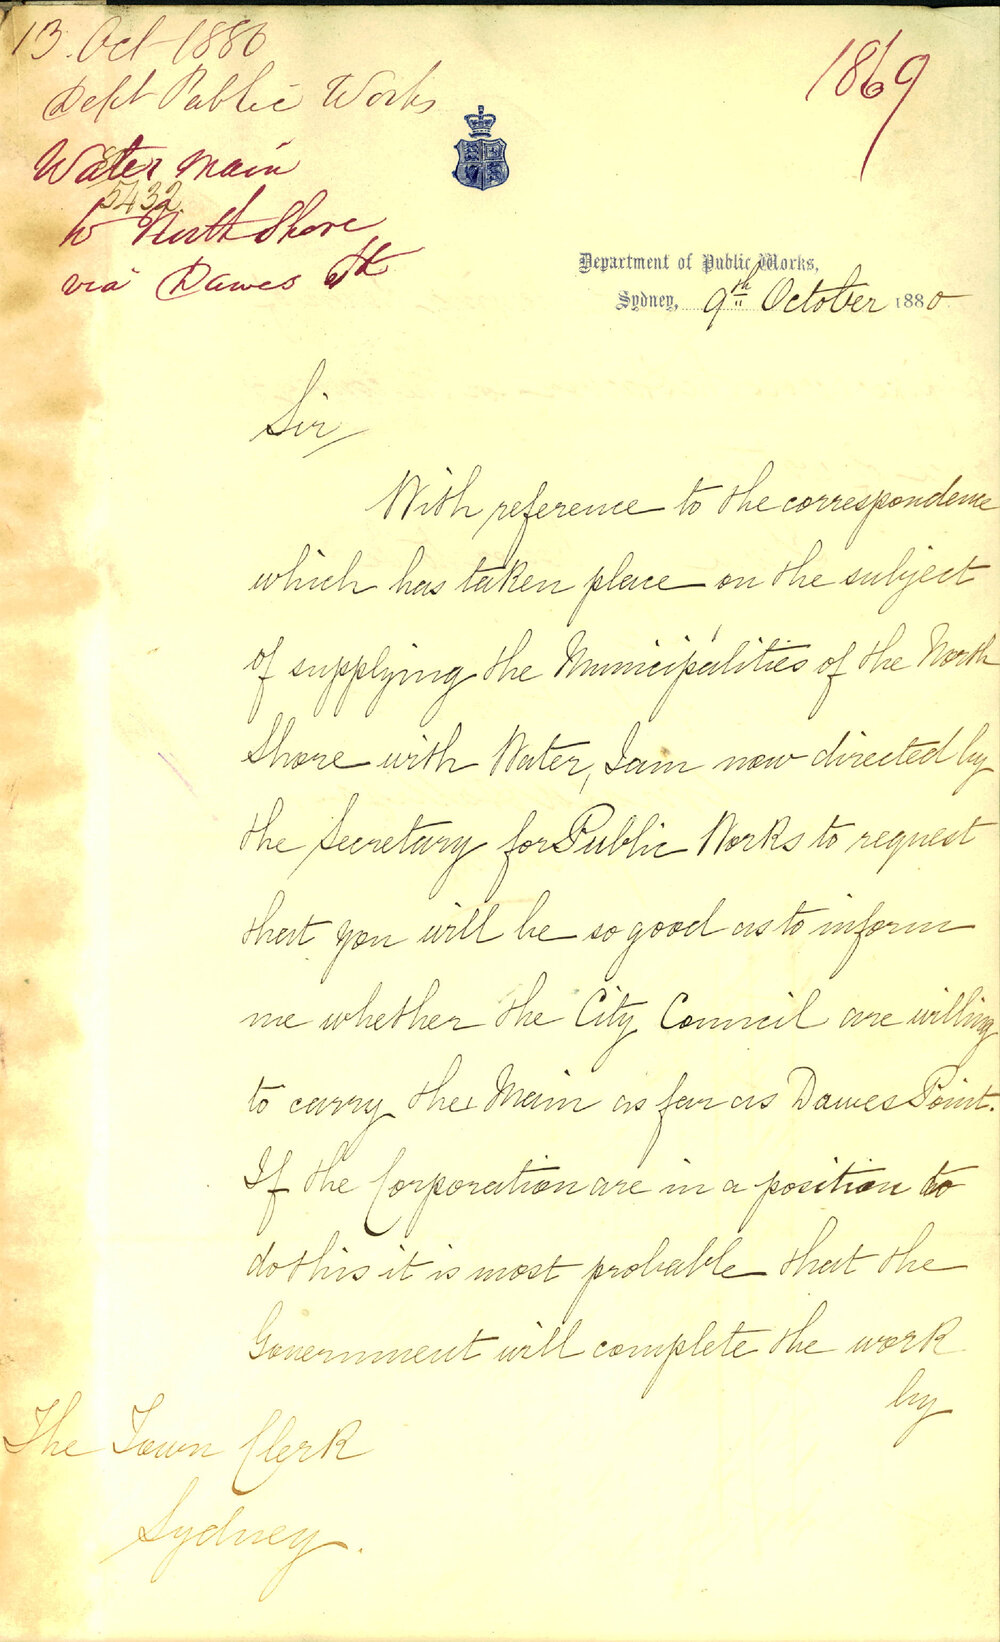 13. Oct 1880
Dept Public Works
Water Main
5432
to North Shore
via Dawes Pt
1869
Department of Public Works,
Sydney, 9th October 1880
Sir,
With reference to the correspondence
which has taken place on the subject
of supplying the Municipalities of the North
Shore with Water, I am now directed by
the Secretary for Public Works to request
that you will be so good as to inform
me whether the City Council are willing
to carry the Main as far as Dawes Point.
If the Corporation are in a position to
do this it is most probable that the
Government will complete the work
by
The Town Clerk
Sydney.